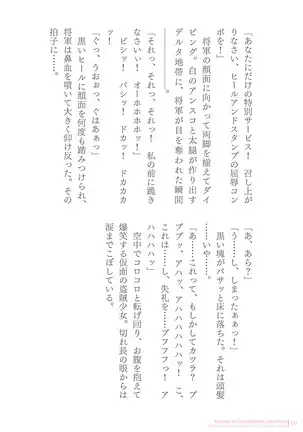 「あなたにだけの特別サービス！　召し上が
りなさい、ヒールアンドスタンプの屈辱コン
ボを！」
　将軍の顔面に向かって両脚を揃えてダイ
ビング。白のアンスコと太腿が作り出す
デルタ地帯に、将軍が目を奪われた瞬間
「それっ、それっ、それっ！　私の前に跪き
なさいい！　オーホホホホッ！」
　ビシッ！　バシッ！　ドカッ！　ドカカカ
ッ！
「ぐっ、うおぉっ、ぐはあぁっ」
　黒いヒールに顔面を何度も踏みつけられ、
将軍は鼻血を噴いて大きく仰け反った。その
拍子に……。
「あ、あら？」
「う……し、しまったぁぁっ！」
　黒い塊がバサッと床に落ちた。それは頭髪
……いや……。
「あ……これって、もしかしてカツラ？　プ
ププッ、アハッ、アハハハハハッ！　こ、
これは……し、失礼……ププフフっ！　ア
ハハハハッ」
　空中でコロコロと転げ回り、お腹を抱えて
爆笑する仮面の盗賊少女。切れ長の眼からは
涙までこぼしている。